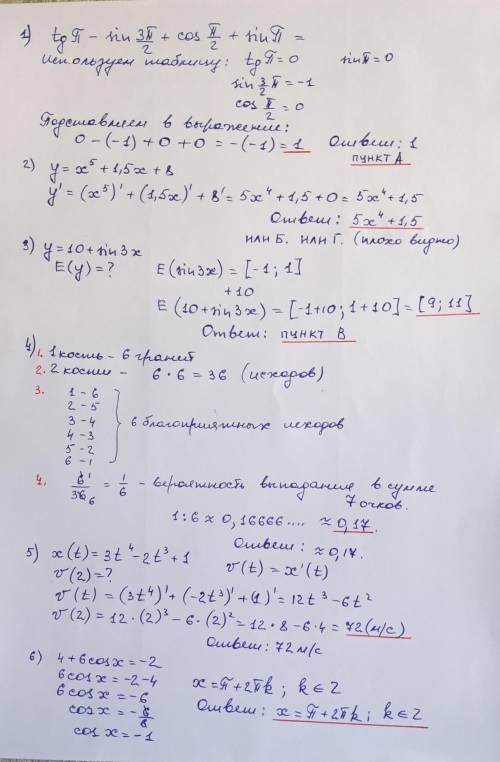 1) tg π - sin 3π/2 + cos π/2 + sin π =
Используем таблицу: tg π = 0 sin π = 0
sin 3/2 π = -1
cos π/2 = 0
Подставляем в выражение:
0 - (-1) + 0 + 0 = -(-1) = 1 Ответ: 1
пункт А
2) y = x⁵ + 1,5x + 8
y' = (x⁵)' + (1,5x)' + 8' = 5x⁴ + 1,5 + 0 = 5x⁴ + 1,5
Ответ: 5x⁴ + 1,5
или Б. или Г. (плохо видно)
3) y = 10 + sin 3x
E(y) = ? E (sin 3x) = [-1; 1]
+10
E (10 + sin 3x) = [-1+10; 1+10] = [9; 11]
Ответ: пункт В
4) 1. 1 кость - 6 граней
2. 2 кости - 6 · 6 = 36 (исходов)
3. 1 - 6
2 - 5
3 - 4
4 - 3 } 6 благоприятных исходов
5 - 2
6 - 1
4. 6¹/36₆ = 1/6 - вероятность выпадания в сумме
7 очков.
1 : 6 ≈ 0,16666.... ≈ 0,17.
Ответ: ≈ 0,17.
5) x(t) = 3t⁴ - 2t³ + 1
v(2) = ? v(t) = x'(t)
v(t) = (3t⁴)' + (-2t³)' + (1)' = 12t³ - 6t²
v(2) = 12 · (2)³ - 6 · (2)² = 12 · 8 - 6 · 4 = 72 (м/с)
Ответ: 72 м/с
6) 4 + 6cos x = -2
6cos x = -2 - 4
6cos x = -6 x = π + 2πk; k ∈ Z
cos x = - 6/6 Ответ: x = π + 2πk; k ∈ Z
cos x = -1